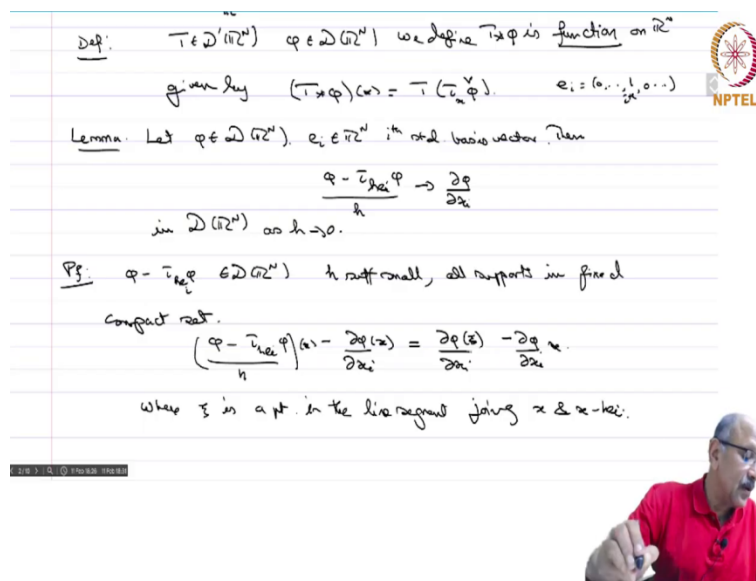 Def: T ∈ D'(ℝᴺ) φ ∈ D(ℝᴺ) we define T*φ is function on ℝⁿ
given by (T*φ)(x) = T(τₓφ̌). eᵢ = (0,..,1,0..)
iᵗʰ
NPTEL
Lemma. Let φ ∈ D(ℝᴺ), eᵢ ∈ ℝᴺ iᵗʰ std. basis vector. Then
(φ - τ_{heᵢ}φ)/h → ∂φ/∂xᵢ
in D(ℝᴺ) as h→0.
Pf: φ - τ_{heᵢ}φ ∈ D(ℝᴺ) h suff small, all supports in fixed
compact set.
((φ - τ_{heᵢ}φ)/h)(x) - ∂φ(x)/∂xᵢ = ∂φ(ξ)/∂xᵢ - ∂φ/∂xᵢ x.
where ξ is a pt. in the line segment joing x & x-heᵢ.
2/10